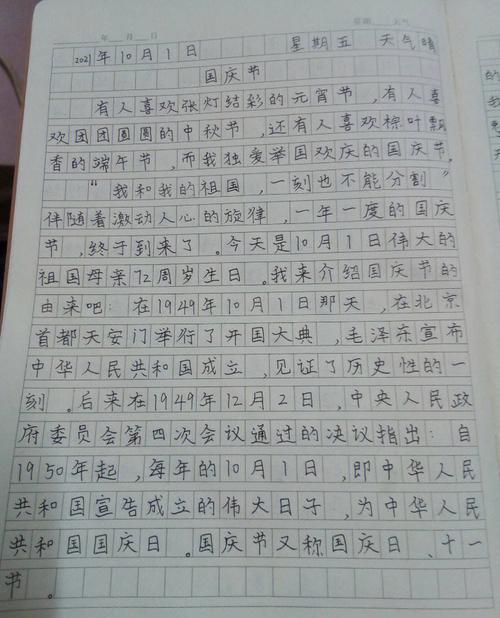 2021年10月1日 星期五 天气晴
国庆节
有人喜欢张灯结彩的元宵节,有人喜
欢团团圆圆的中秋节,还有人喜欢棕叶飘
香的端午节,而我独爱举国欢庆的国庆节,
“我和我的祖国,一刻也不能分割”
伴随着激动人心的旋律,一年一度的国庆
节,终于到来了。今天是10月1日伟大的
祖国母亲72周岁生日。我来介绍国庆节的
由来吧:在1949年10月1日那天,在北京
首都天安门举行了开国大典,毛泽东宣布
中华人民共和国成立,见证了历史性的一
刻。后来在1949年12月2日,中央人民政
府委员会第四次会议通过的决议指出:自
1950年起,每年的10月1日,即中华人民
共和国宣告成立的伟大日子,为中华人民
共和国国庆日。国庆节又称国庆日、十一
节。